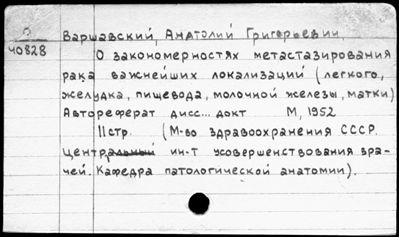 О
40828
Варшавский, Анатолий Григорьевич.
О закономерностях метастазирования
рака важнейших локализаций (легкого,
желудка, пищевода, молочной железы, матки)
Автореферат дисс... докт М, 1952
11стр. (М-во здравоохранения СССР.
Центральный ин-т усовершенствования вра-
чей. Кафедра патологической анатомии).